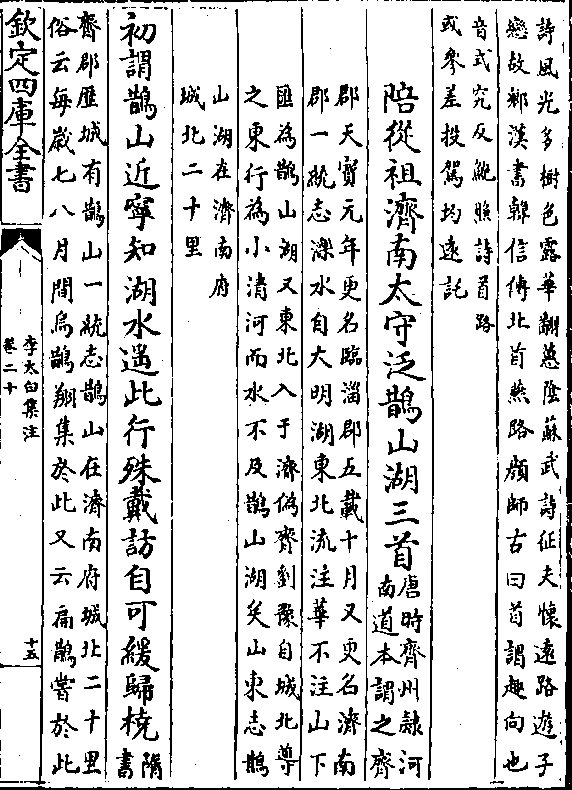 詩風光多樹色露華翻蕙陰蘇武詩征夫懷遠路遊子
戀故鄉漢書韓信傳北首燕路顏師古曰首謂趣向也
音式究反鮑照詩首路
或參差投駕均遠託
陪從祖濟南太守泛鵲山湖三首
唐時齊州隸河
南道本謂之齊
郡天寶元年更名臨淄郡五載十月又更名濟南
郡一統志濼水自大明湖東北流注華不注山下
匯為鵲山湖又東北入于濟偽齊劉豫自城北導
之東行為小清河而水不及鵲山湖矣山東志鵲
山湖在濟南府
城北二十里
初謂鵲山近寧知湖水遥此行殊戴訪自可緩歸橈
隋
書
齊郡歷城有鵲山一統志鵲山在濟南府城北二十里
俗云每歲七八月間烏鵲翔集於此又云扁鵲嘗於此
欽定四庫全書
李太白集注
卷二十
十五